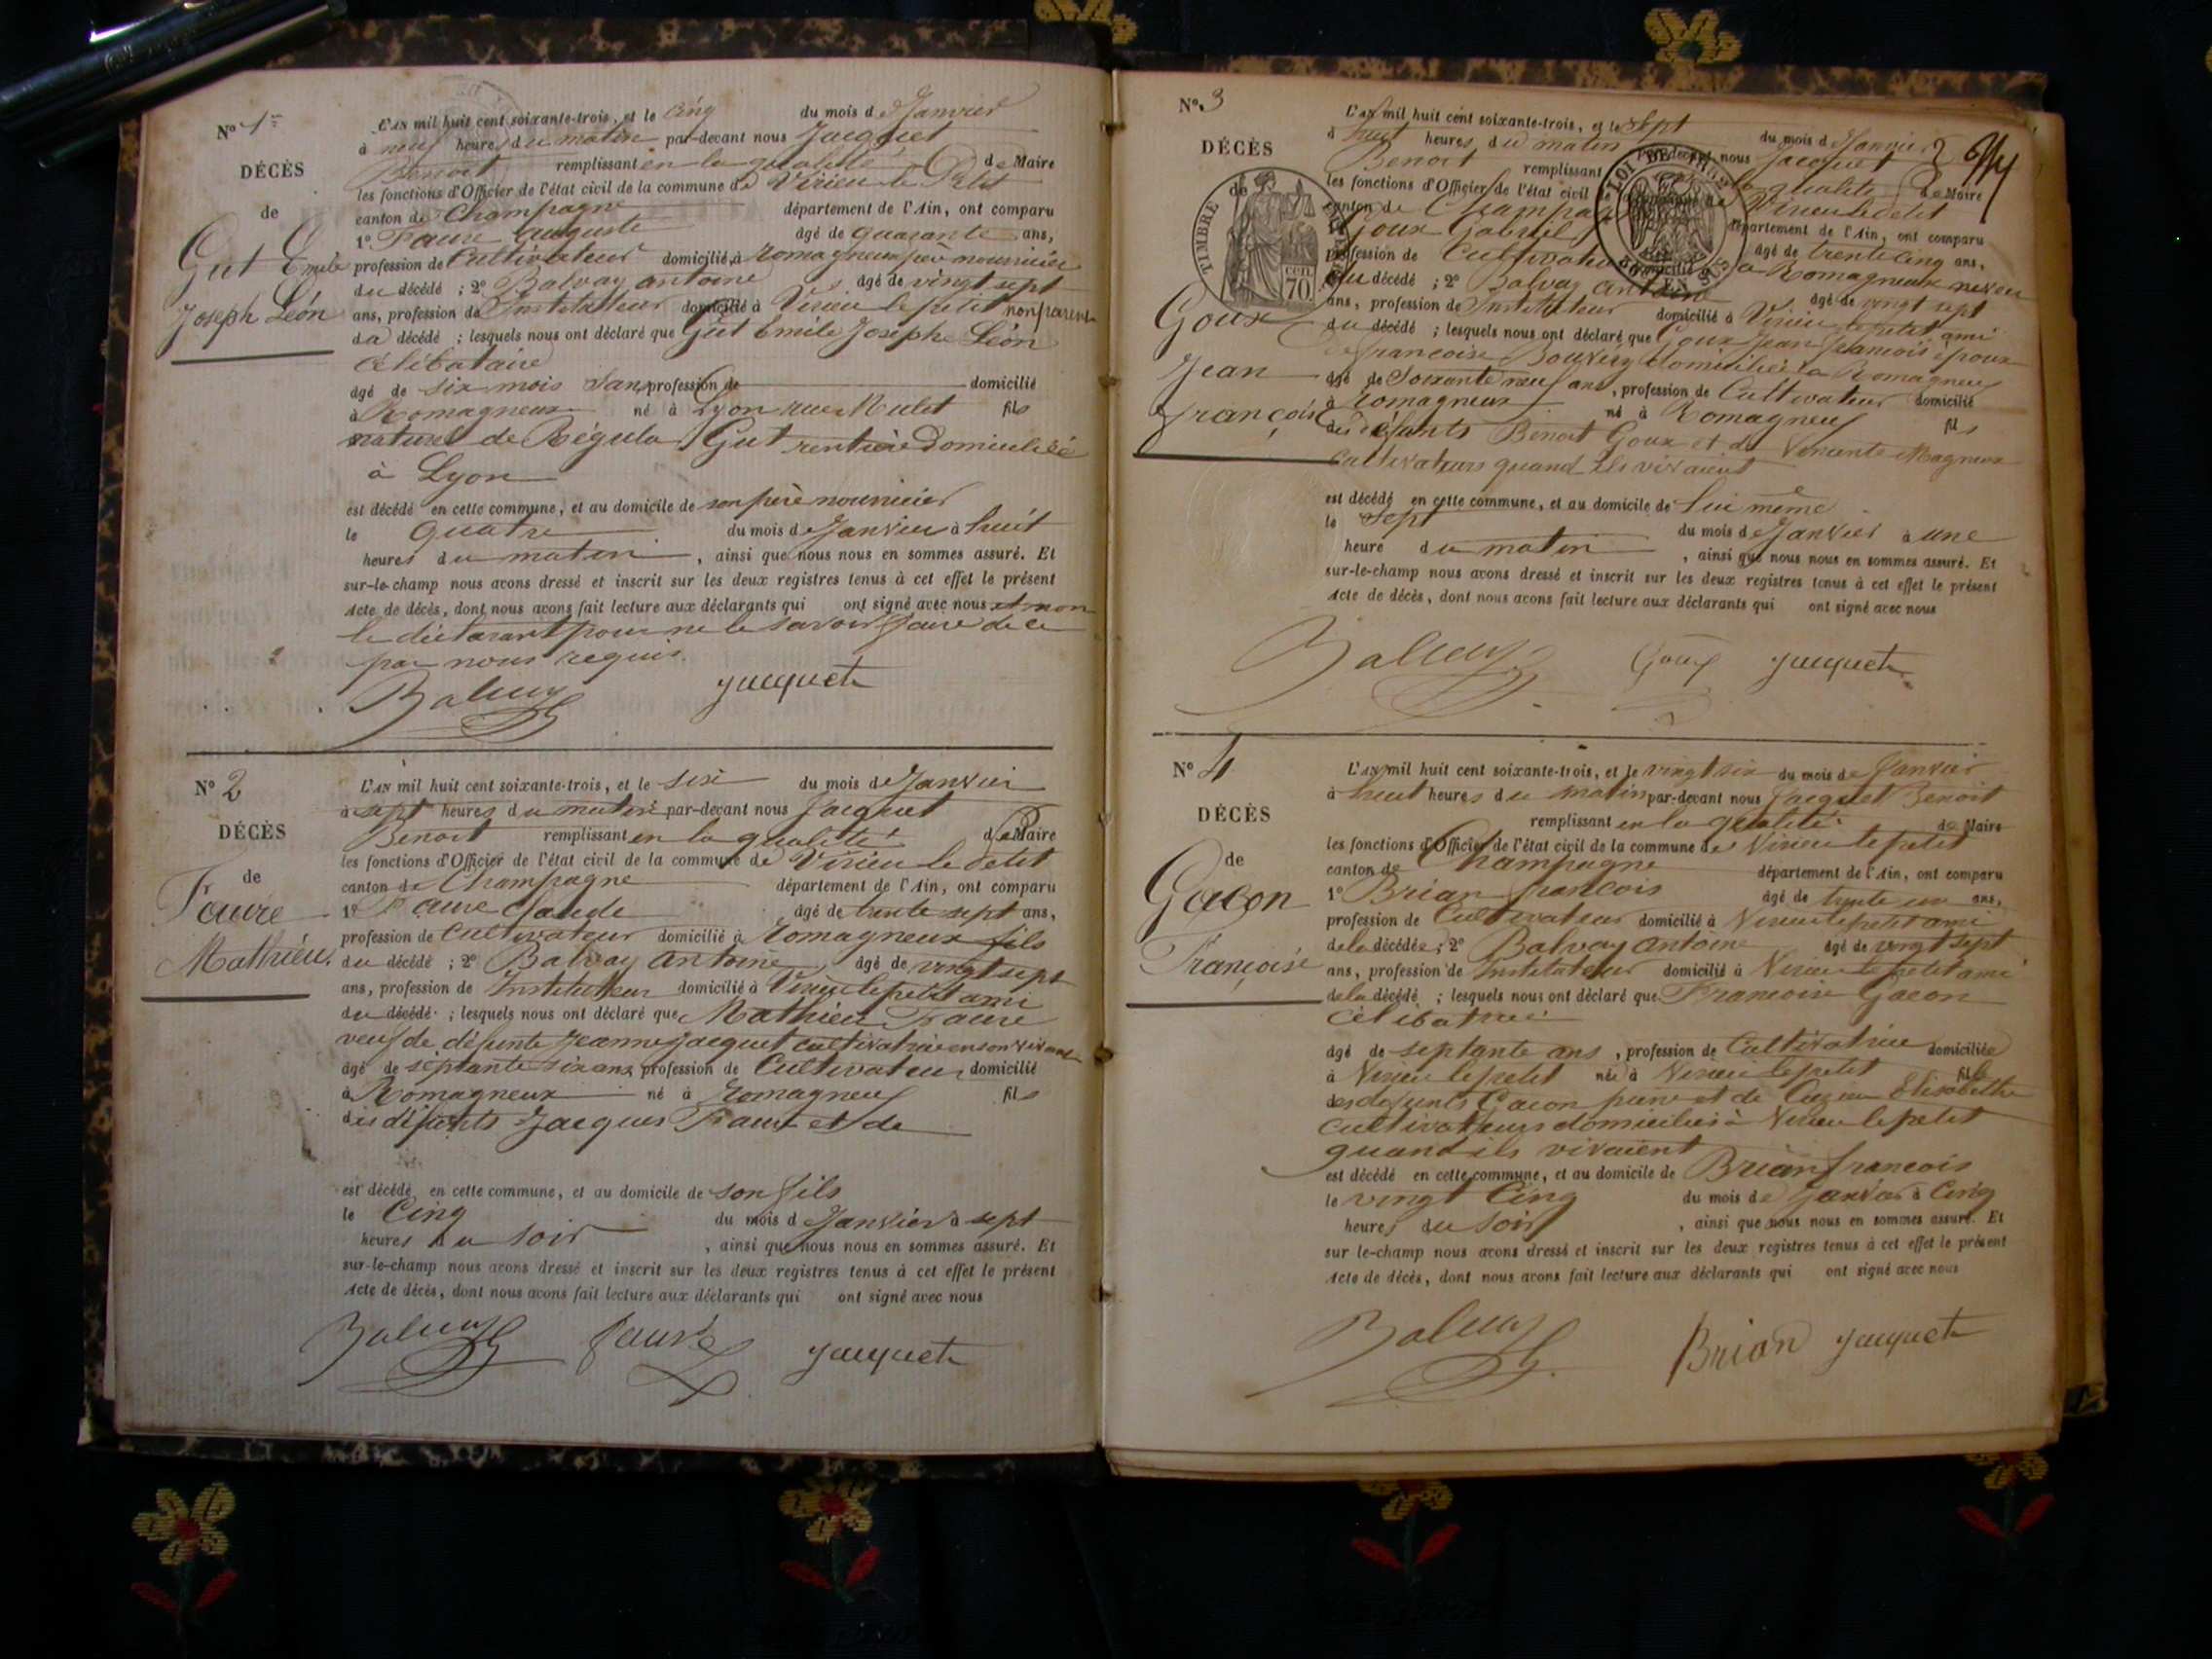 N° 1er
DÉCÈS
de
Gut Emile
Joseph Léon
L'AN mil huit cent soixante-trois, et le cinq du mois de Janvier
à neuf heures du matin par-devant nous Jacquet
Benoit remplissant en la qualité de Maire
les fonctions d'Officier de l'état civil de la commune de Virieu le Petit
canton de Champagne département de l'Ain, ont comparu
1° Faure Auguste âgé de quarante ans,
profession de Cultivateur domicilié à Romagneux père nourricier
du décédé ; 2° Balvay antoine âgé de vingt sept
ans, profession de Instituteur domicilié à Virieu le petit non parent
du décédé ; lesquels nous ont déclaré que Gut Emile Joseph Léon
célibataire
âgé de six mois sans profession de domicilié
à Romagneux né à Lyon rue Mulet fils
naturel de Régula Gut rentière Domiciliée
à Lyon
est décédé en cette commune, et au domicile de son père nourricier
le quatre du mois de Janvier à huit
heures du matin , ainsi que nous nous en sommes assuré. Et
sur-le-champ nous avons dressé et inscrit sur les deux registres tenus à cet effet le présent
Acte de décès, dont nous avons fait lecture aux déclarants qui ont signé avec nous et non
le déclarant pour ne le savoir faire de ce
par nous requis.
Balvay Jacquet
N° 2
DÉCÈS
de
Faure
Mathieu.
L'AN mil huit cent soixante-trois, et le six du mois de Janvier
à sept heures du matin par-devant nous Jacquet
Benoit remplissant en la qualité de Maire
les fonctions d'Officier de l'état civil de la commune de Virieu le Petit
canton de Champagne département de l'Ain, ont comparu
1° Faure Claude âgé de trente sept ans,
profession de Cultivateur domicilié à Romagneux fils
du décédé ; 2° Balvay Antoine âgé de vingt sept
ans, profession de Instituteur domicilié à Virieu le petit ami
du décédé ; lesquels nous ont déclaré que Mathieu Faure
veuf de défunte Jeanne Jacquet cultivatrice en son vivant
âgé de septante six ans profession de Cultivateur domicilié
à Romagneux né à Romagneux fils
des défunts Jacques Faure et de
est décédé en cette commune, et au domicile de son fils
le Cinq du mois de Janvier à sept
heures du soir , ainsi que nous nous en sommes assuré. Et
sur-le-champ nous avons dressé et inscrit sur les deux registres tenus à cet effet le présent
Acte de décès, dont nous avons fait lecture aux déclarants qui ont signé avec nous
Balvay faure Jacquet
N° 3
DÉCÈS
de
TIMBRE
CEN. 70
Goux
Jean
françois
L'AN mil huit cent soixante-trois, et le sept du mois de Janvier
à huit heures du matin par-devant nous Jacquet
Benoit remplissant la qualité de Maire
les fonctions d'Officier de l'état civil Virieu le Petit
canton de Champagne département de l'Ain, ont comparu
Goux Gabriel âgé de trente cinq ans,
profession de Cultivateur domicilié à Romagneux neveu
du décédé ; 2° Balvay antoine âgé de vingt sept
ans, profession de Instituteur domicilié à Virieu le petit ami
du décédé ; lesquels nous ont déclaré que Goux Jean françois époux
de françoise Bouvery domiciliée à Romagneux
âgé de Soixante neuf ans, profession de Cultivateur domicilié
à Romagneux né à Romagneux fils
des défunts Benoit Goux et de Vincente Magneux
cultivateurs quand ils vivaient
est décédé en cette commune, et au domicile de lui même
le sept du mois de Janvier à une
heure du matin , ainsi que nous nous en sommes assuré. Et
sur-le-champ nous avons dressé et inscrit sur les deux registres tenus à cet effet le présent
Acte de décès, dont nous avons fait lecture aux déclarants qui ont signé avec nous
Balvay Goux Jacquet
N° 4
DÉCÈS
de
Gacon
Françoise
L'AN mil huit cent soixante-trois, et le vingt six du mois de Janvier
à huit heures du matin par-devant nous Jacquet Benoit
remplissant en la qualité de Maire
les fonctions d'Officier de l'état civil de la commune de Virieu le petit
canton de Champagne département de l'Ain, ont comparu
1° Brian françois âgé de trente un ans,
profession de Cultivateur domicilié à Virieu le petit ami
de la décédée ; 2° Balvay antoine âgé de vingt sept
ans, profession de Instituteur domicilié à Virieu le petit ami
de la décédé ; lesquels nous ont déclaré que Francoise Gacon
célibataire
âgé de septante ans , profession de Cultivatrice domiciliée
à Virieu le petit née à Virieu le petit fille
des defunts Gacon pierre et de Cuzieu Elisabethe
cultivateurs domiciliés à Virieu le petit
quand ils vivaient
est décédé en cette commune, et au domicile de Brian francois
le vingt Cinq du mois de Janvier à Cinq
heures du soir , ainsi que nous nous en sommes assuré. Et
sur le-champ nous avons dressé et inscrit sur les deux registres tenus à cet effet le présent
Acte de décès, dont nous avons fait lecture aux déclarants qui ont signé avec nous
Balvay Brian Jacquet